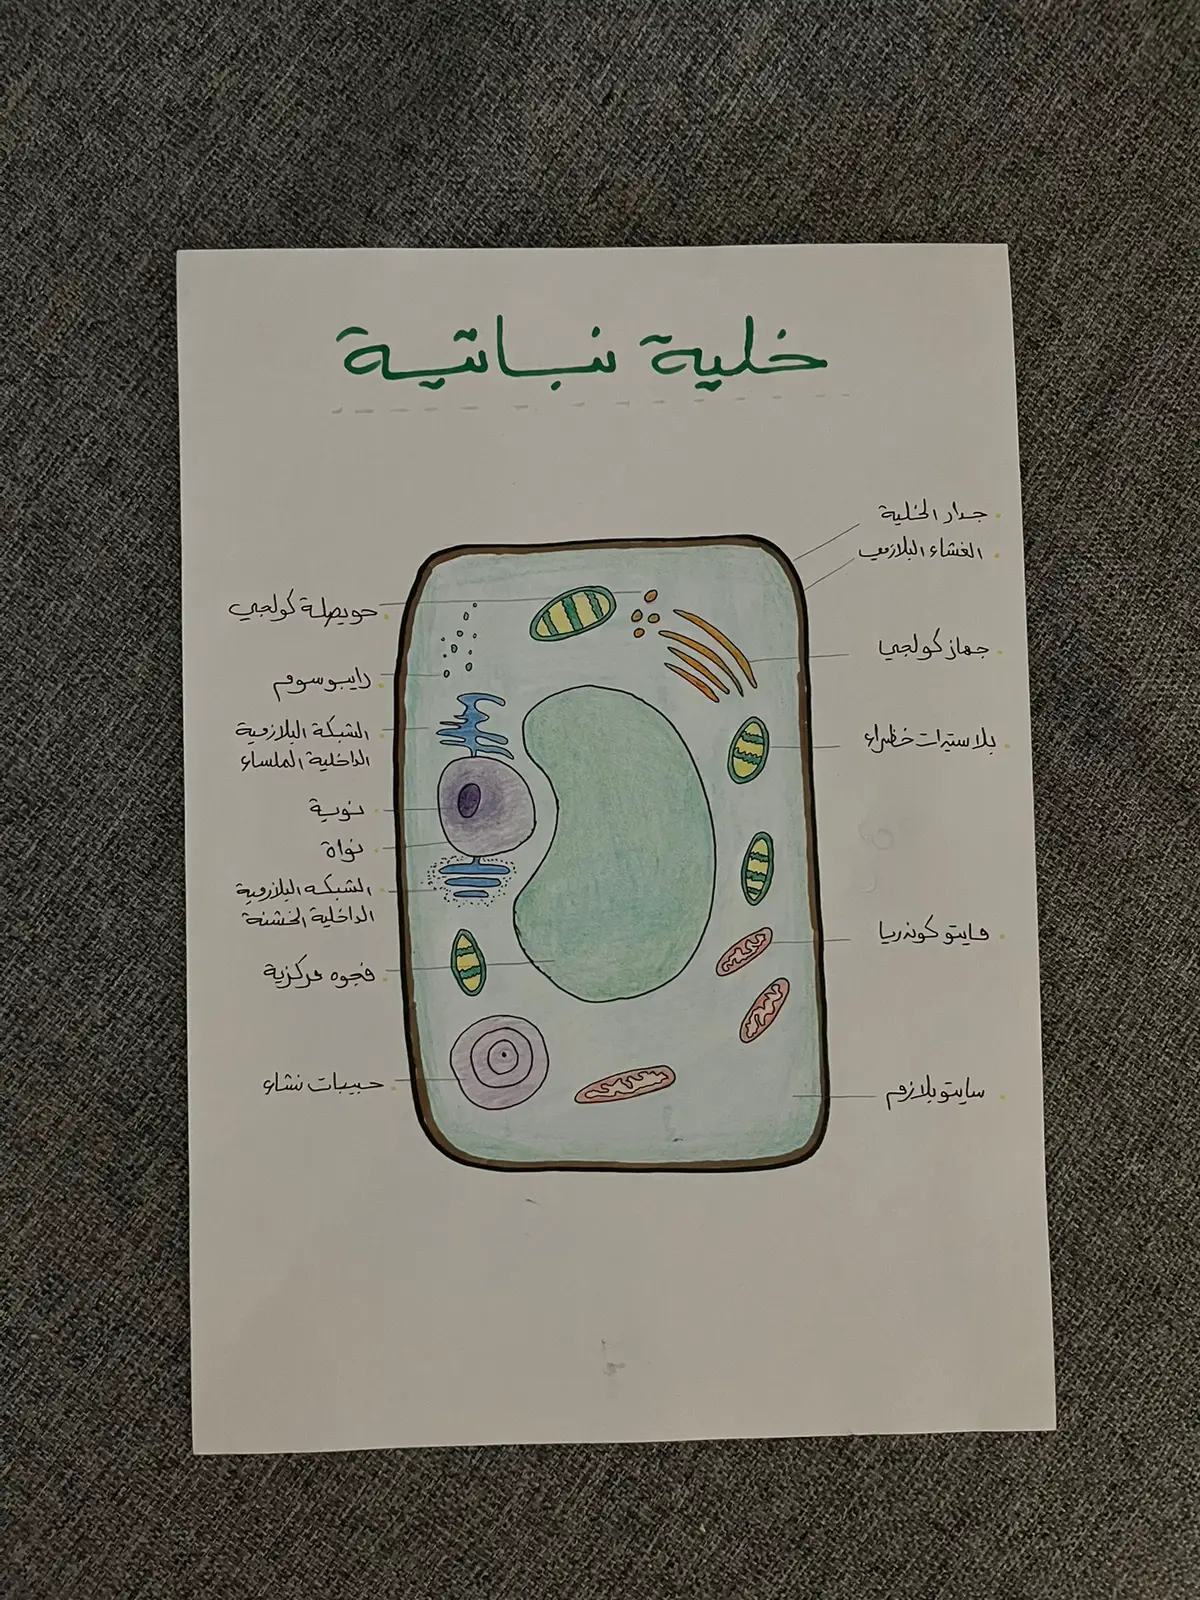 خلية نباتية
جدار الخلية
الغشاء البلازمي
جهاز كولجي
بلاستيدات خضراء
مايتوكوندريا
سايتوبلازم
حويصلة كولجي
رايبوسوم
الشبكة البلازمية
الداخلية الملساء
نوية
نواة
الشبكه البلازمية
الداخلية الخشنة
فجوه مركزية
حبيبات نشاء